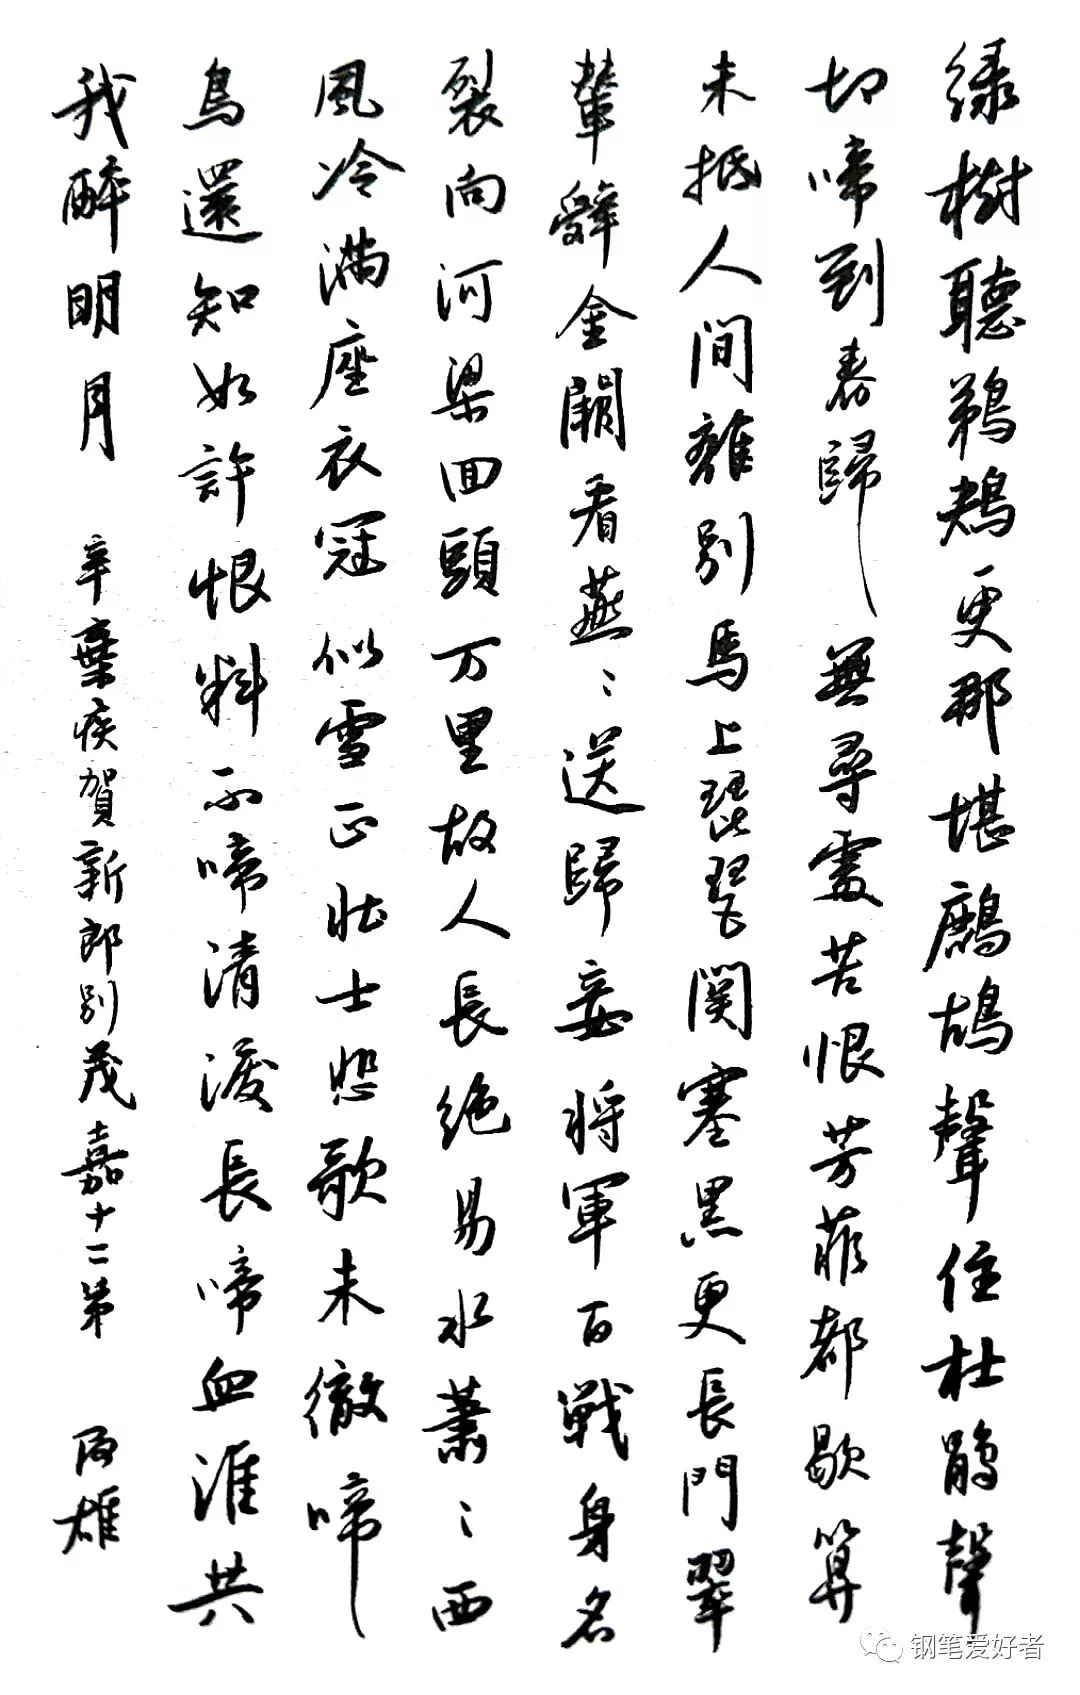 绿樹聽鵜鴂更那堪鷓鴣聲住杜鵑聲
切啼到春歸無尋處苦恨芳菲都歇算
未抵人间離别馬上琵琶関塞黑更長門翠
輦辭金闕看燕〻送歸妾将軍百戦身名
裂向河梁回頭万里故人長絶易水蕭〻西
風冷满座衣冠似雪正壮士悲歌未徹啼
鳥還知如許恨料不啼清淚長啼血誰共
我醉明月
辛棄疾賀新郎别茂嘉十二弟
雄
钢笔爱好者